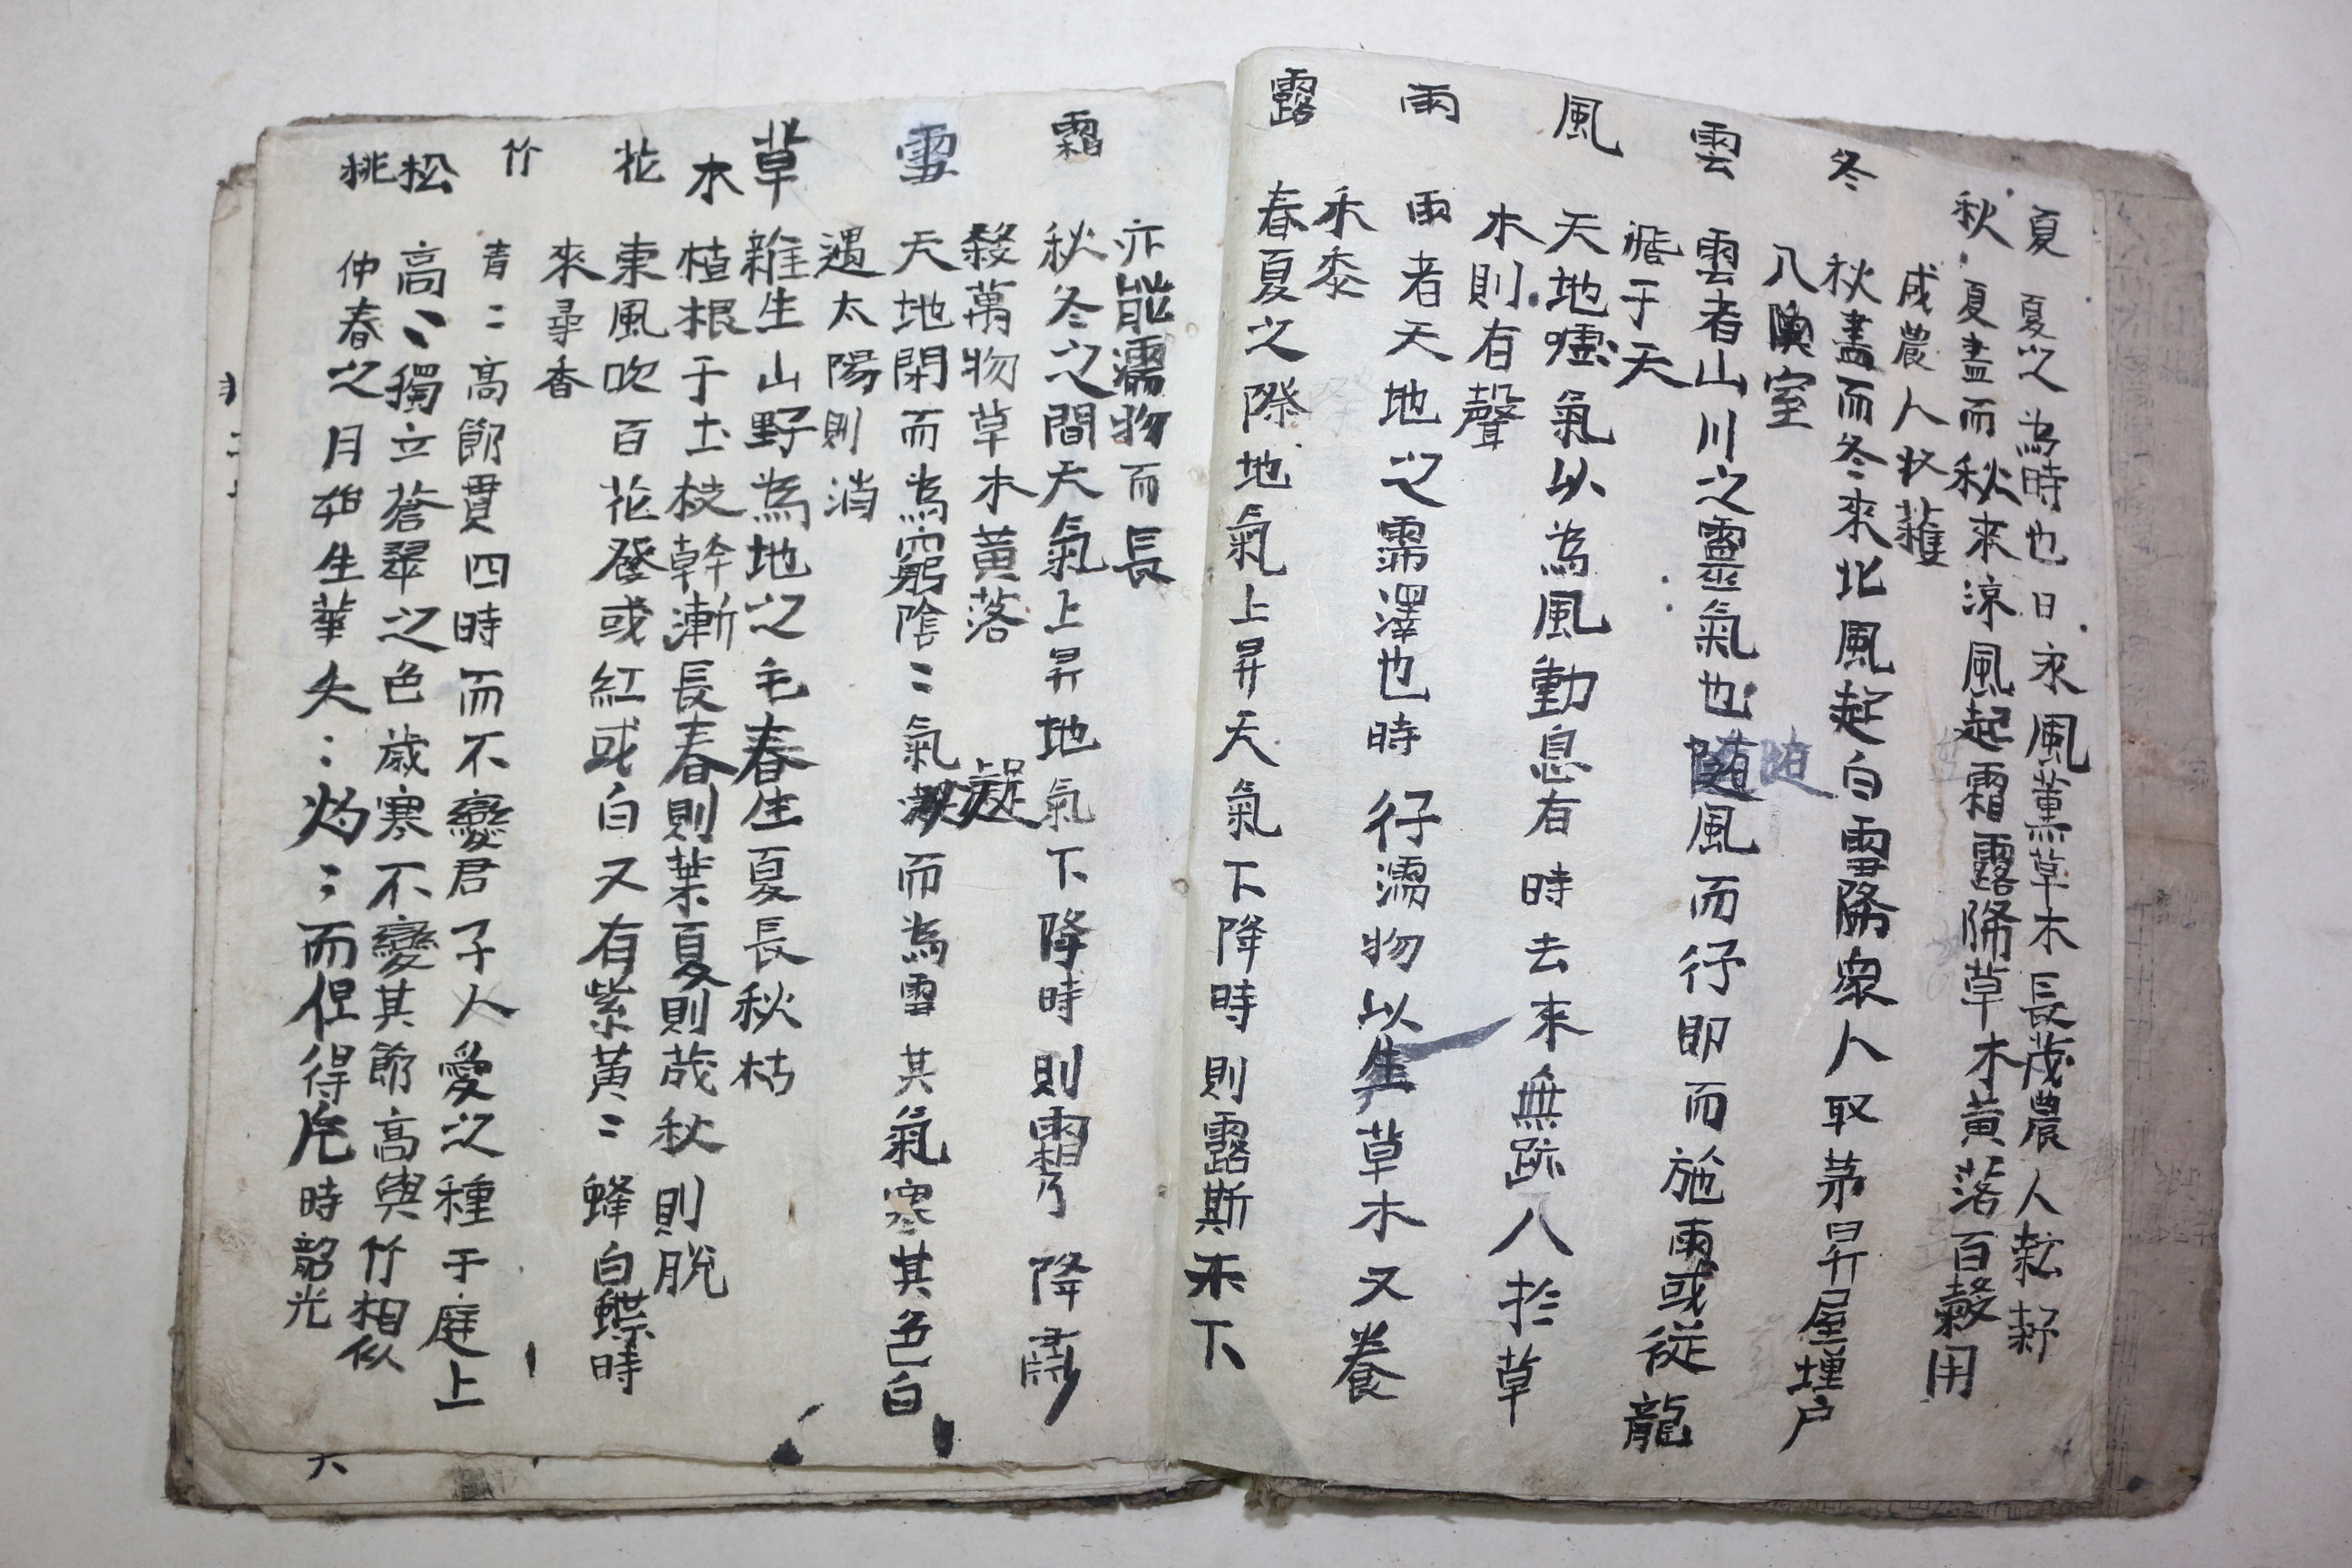 夏 夏之為時也日永風薰草木長茂農人耘耔
秋 夏盡而秋來涼風起霜露降草木黃落百穀用
成農人收穫
冬 秋盡而冬來北風起白雪降衆人取茅昇屋墐户
入隩室
雲 雲者山川之靈氣也随風而行即而施雨或從龍
随
飛于天
風 天地嘘氣以為風動息有時去來無跡入於草
木則有聲
雨 雨者天地之霈澤也時行濡物以生草木又養
禾黍
露 春夏之際地氣上昇天氣下降時則露斯禾下
亦能濡物而長
霜 秋冬之間天氣上昇地氣下降時則霜乃降肅
殺萬物草木黃落
雪 天地閉而為窮陰〻氣凝而為雪其氣寒其色白
遇太陽則消
草 雜生山野為地之毛春生夏長秋枯
木 植根于土枝幹漸長春則葉夏則茂秋則脫
花 東風吹百花發或紅或白又有紫黃〻蜂白蝶時
來尋香
竹 青〻高節貫四時而不變君子人愛之種于庭上
松 高〻獨立蒼翠之色歲寒不變其節高與竹相似
桃 仲春之月始生華夭〻灼〻而但得片時韶光
六